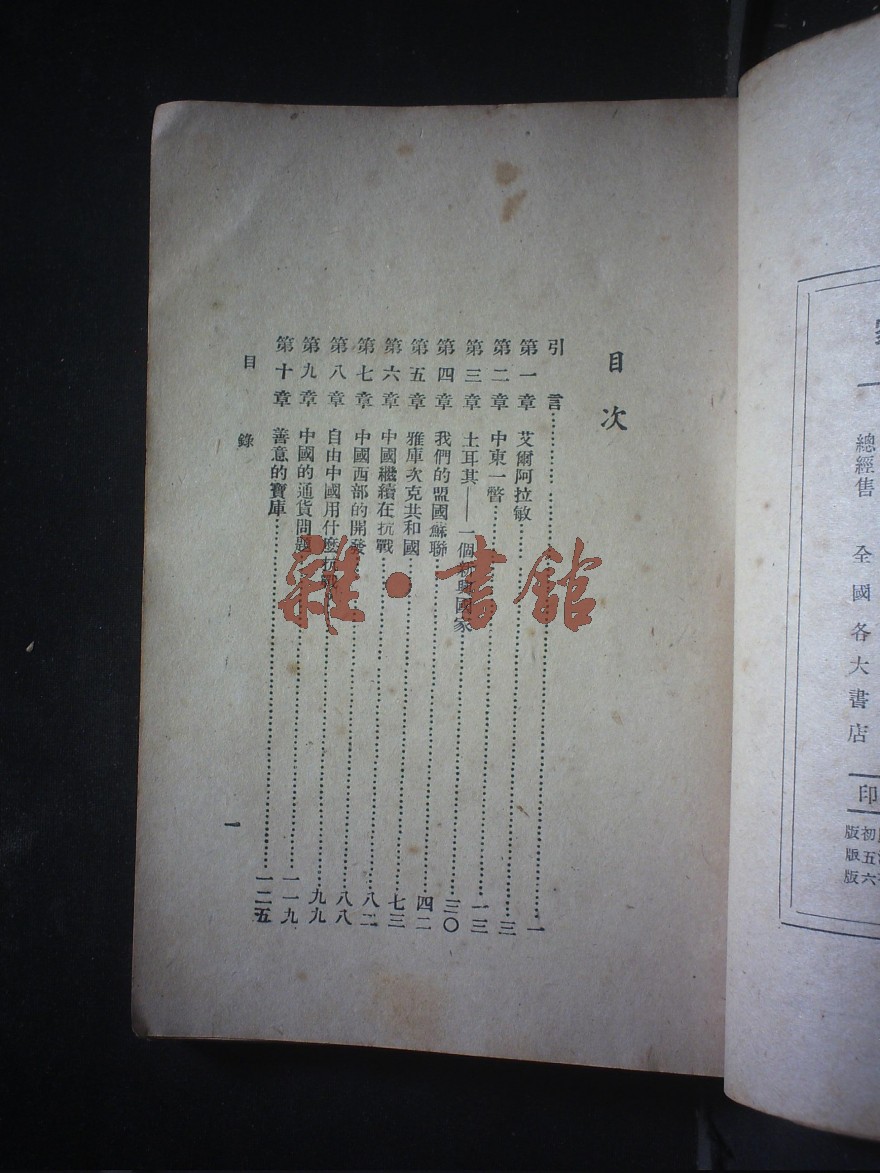 總經售 全國各大書店
印
初版
五版
六版
目次
引言……一
第一章 艾爾阿拉敏……三
第二章 中東一瞥……一三
第三章 土耳其——一個新興國家……三〇
第四章 我們的盟國蘇聯……四二
第五章 雅庫次克共和國……七三
第六章 中國繼續在抗戰……八二
第七章 中國西部的開發……八八
第八章 自由中國用什麼抗戰……九九
第九章 中國的通貨問題……一一九
第十章 善意的寶庫……一二五
目錄
一
雜·書館